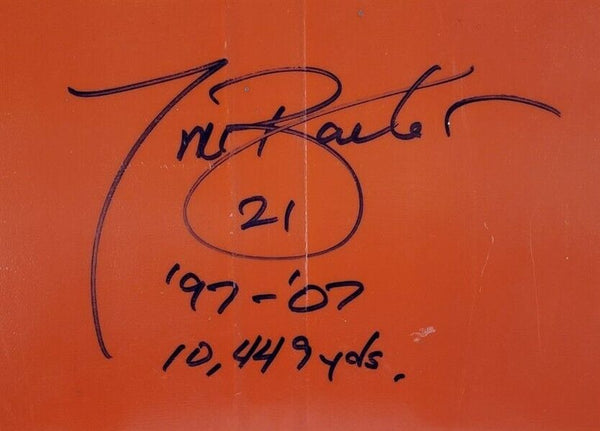 Tiki Barber
21
'97-'07
10,449 yds.